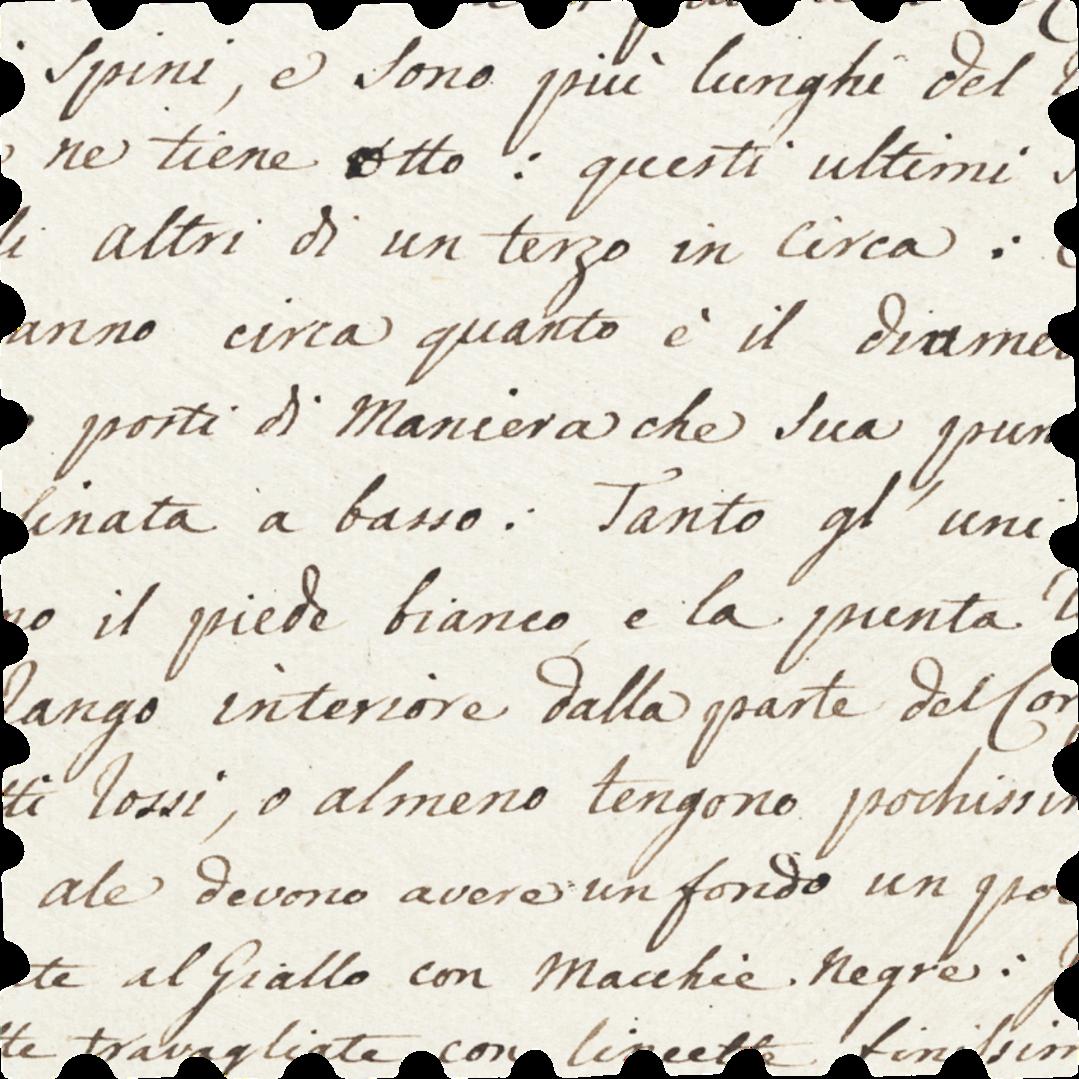 Spini, e sono più lunghi del
ne tiene otto : questi ultimi
altri di un terzo in circa :
anno circa quanto è il diame
posti di Maniera che sua pun
linata a basso : Tanto gl' uni
no il piede bianco, e la punta
interiore dalla parte del Cor
tti rossi, o almeno tengono pochissi
ale devono avere un fondo un po
te al Giallo con Macchie Negre :
tte travagliate con linette finissim